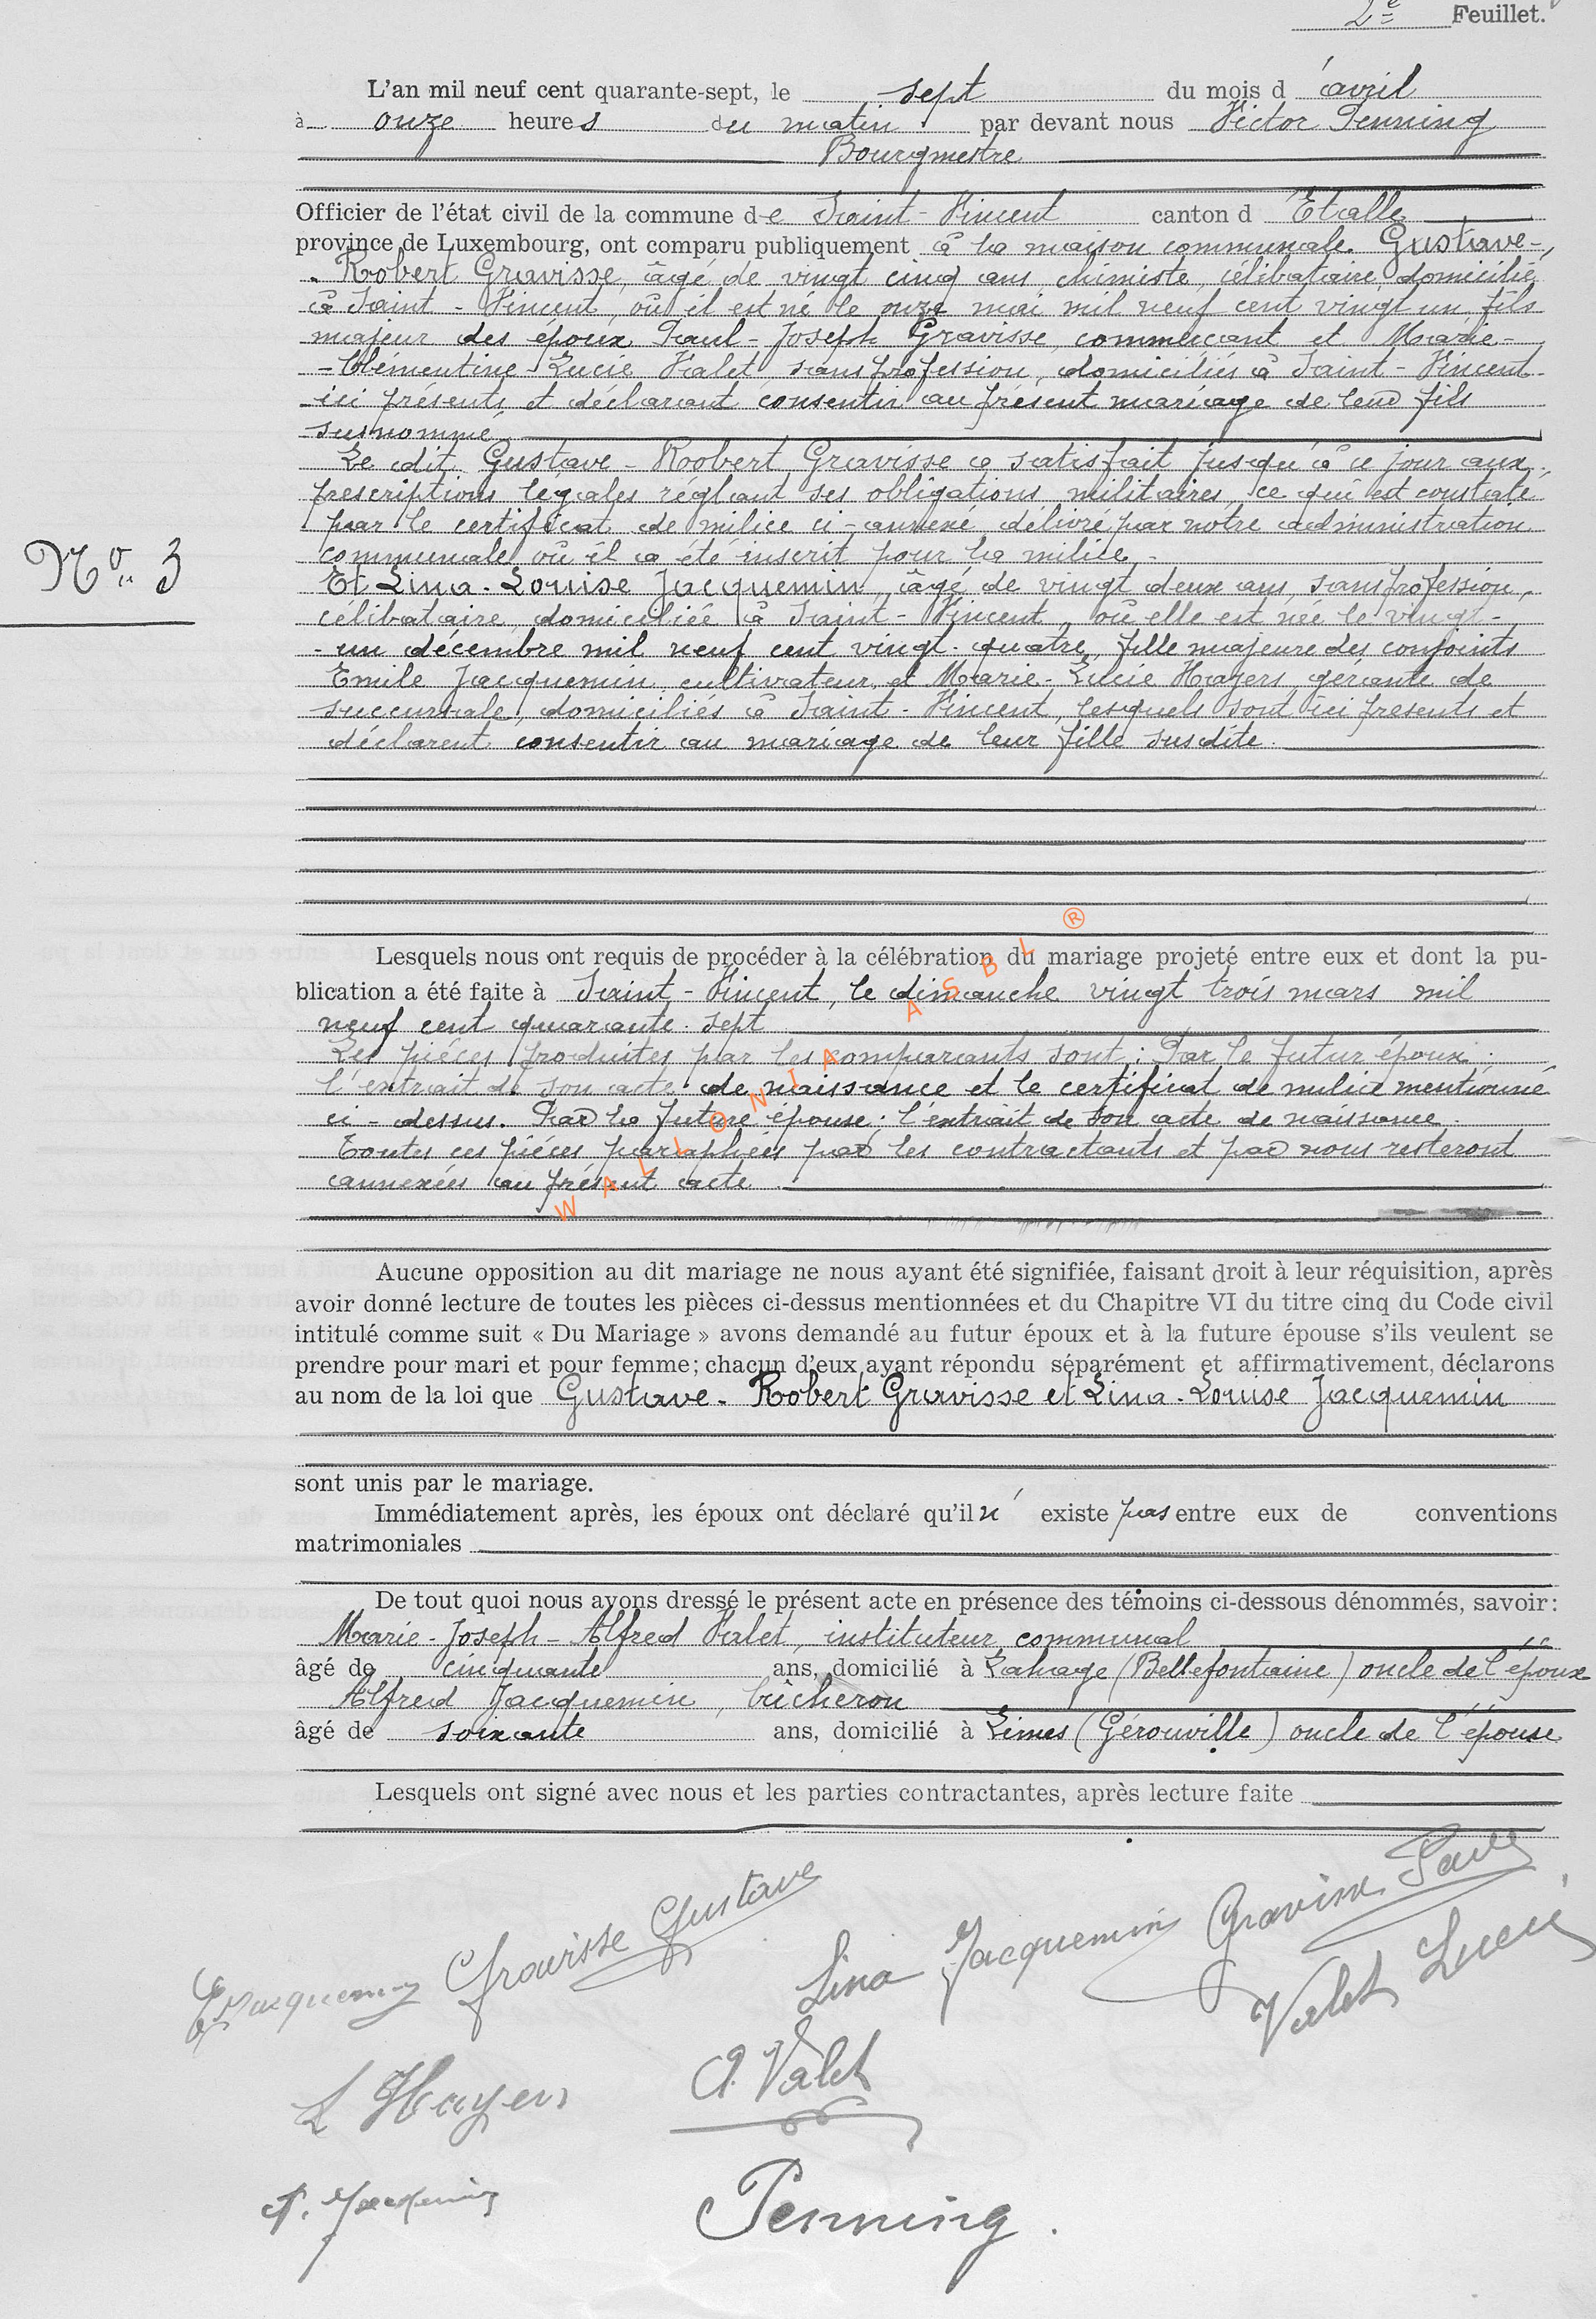 2e Feuillet.
L'an mil neuf cent quarante-sept, le sept du mois d'avril
à onze heures du matin par devant nous Victor Penning
Bourgmestre
Officier de l'état civil de la commune de Saint-Vincent canton d'Etalle
province de Luxembourg, ont comparu publiquement à la maison communale. Gustave-
-Robert Gravisse, âgé de vingt cinq ans, chimiste, célibataire, domicilié
à Saint-Vincent, où il est né le onze mai mil neuf cent vingt un, fils
majeur des époux Paul-Joseph Gravisse, commerçant et Marie-
-Clémentine-Lucie Valet, sans profession, domiciliés à Saint-Vincent
ici présents et déclarant consentir au présent mariage de leur fils
susnommé
Le dit Gustave-Robert Gravisse a satisfait jusqu'à ce jour aux
prescriptions légales réglant ses obligations militaires, ce qui est constaté
par le certificat de milice ci-annexé délivré par notre administration
communale où il a été inscrit pour la milice.
No 3
Et Lina-Louise Jacquemin, âgée de vingt deux ans, sans profession,
célibataire, domiciliée à Saint-Vincent, où elle est née le vingt-
-un décembre mil neuf cent vingt-quatre, fille majeure des conjoints
Emile Jacquemin, cultivateur, et Marie-Lucie Hayers, gérante de
succursale, domiciliés à Saint-Vincent, lesquels sont ici présents et
déclarent consentir au mariage de leur fille susdite.
Lesquels nous ont requis de procéder à la célébration du mariage projeté entre eux et dont la pu-
blication a été faite à Saint-Vincent, le dimanche vingt trois mars mil
neuf cent quarante-sept
Les pièces produites par les comparants sont: Par le futur époux:
l'extrait de son acte de naissance et le certificat de milice mentionné
ci-dessus. Par la future épouse: l'extrait de son acte de naissance.
Toutes ces pièces paraphées par les contractants et par nous resteront
annexées au présent acte.
WALLONIA ASBL ®
Aucune opposition au dit mariage ne nous ayant été signifiée, faisant droit à leur réquisition, après
avoir donné lecture de toutes les pièces ci-dessus mentionnées et du Chapitre VI du titre cinq du Code civil
intitulé comme suit « Du Mariage » avons demandé au futur époux et à la future épouse s'ils veulent se
prendre pour mari et pour femme; chacun d'eux ayant répondu séparément et affirmativement, déclarons
au nom de la loi que Gustave-Robert Gravisse et Lina-Louise Jacquemin
sont unis par le mariage.
Immédiatement après, les époux ont déclaré qu'il n'existe pas entre eux de conventions
matrimoniales
De tout quoi nous avons dressé le présent acte en présence des témoins ci-dessous dénommés, savoir:
Marie-Joseph-Alfred Valet, instituteur communal
âgé de cinquante ans, domicilié à Lahage (Bellefontaine) oncle de l'époux
Alfred Jacquemin, bûcheron
âgé de soixante ans, domicilié à Limes (Gérouville) oncle de l'épouse
Lesquels ont signé avec nous et les parties contractantes, après lecture faite
E Jacquemin Gravisse Gustave Lina Jacquemin Gravisse Paul
Valet Lucie
L Hayers A. Valet
A. Jacquemin Penning.